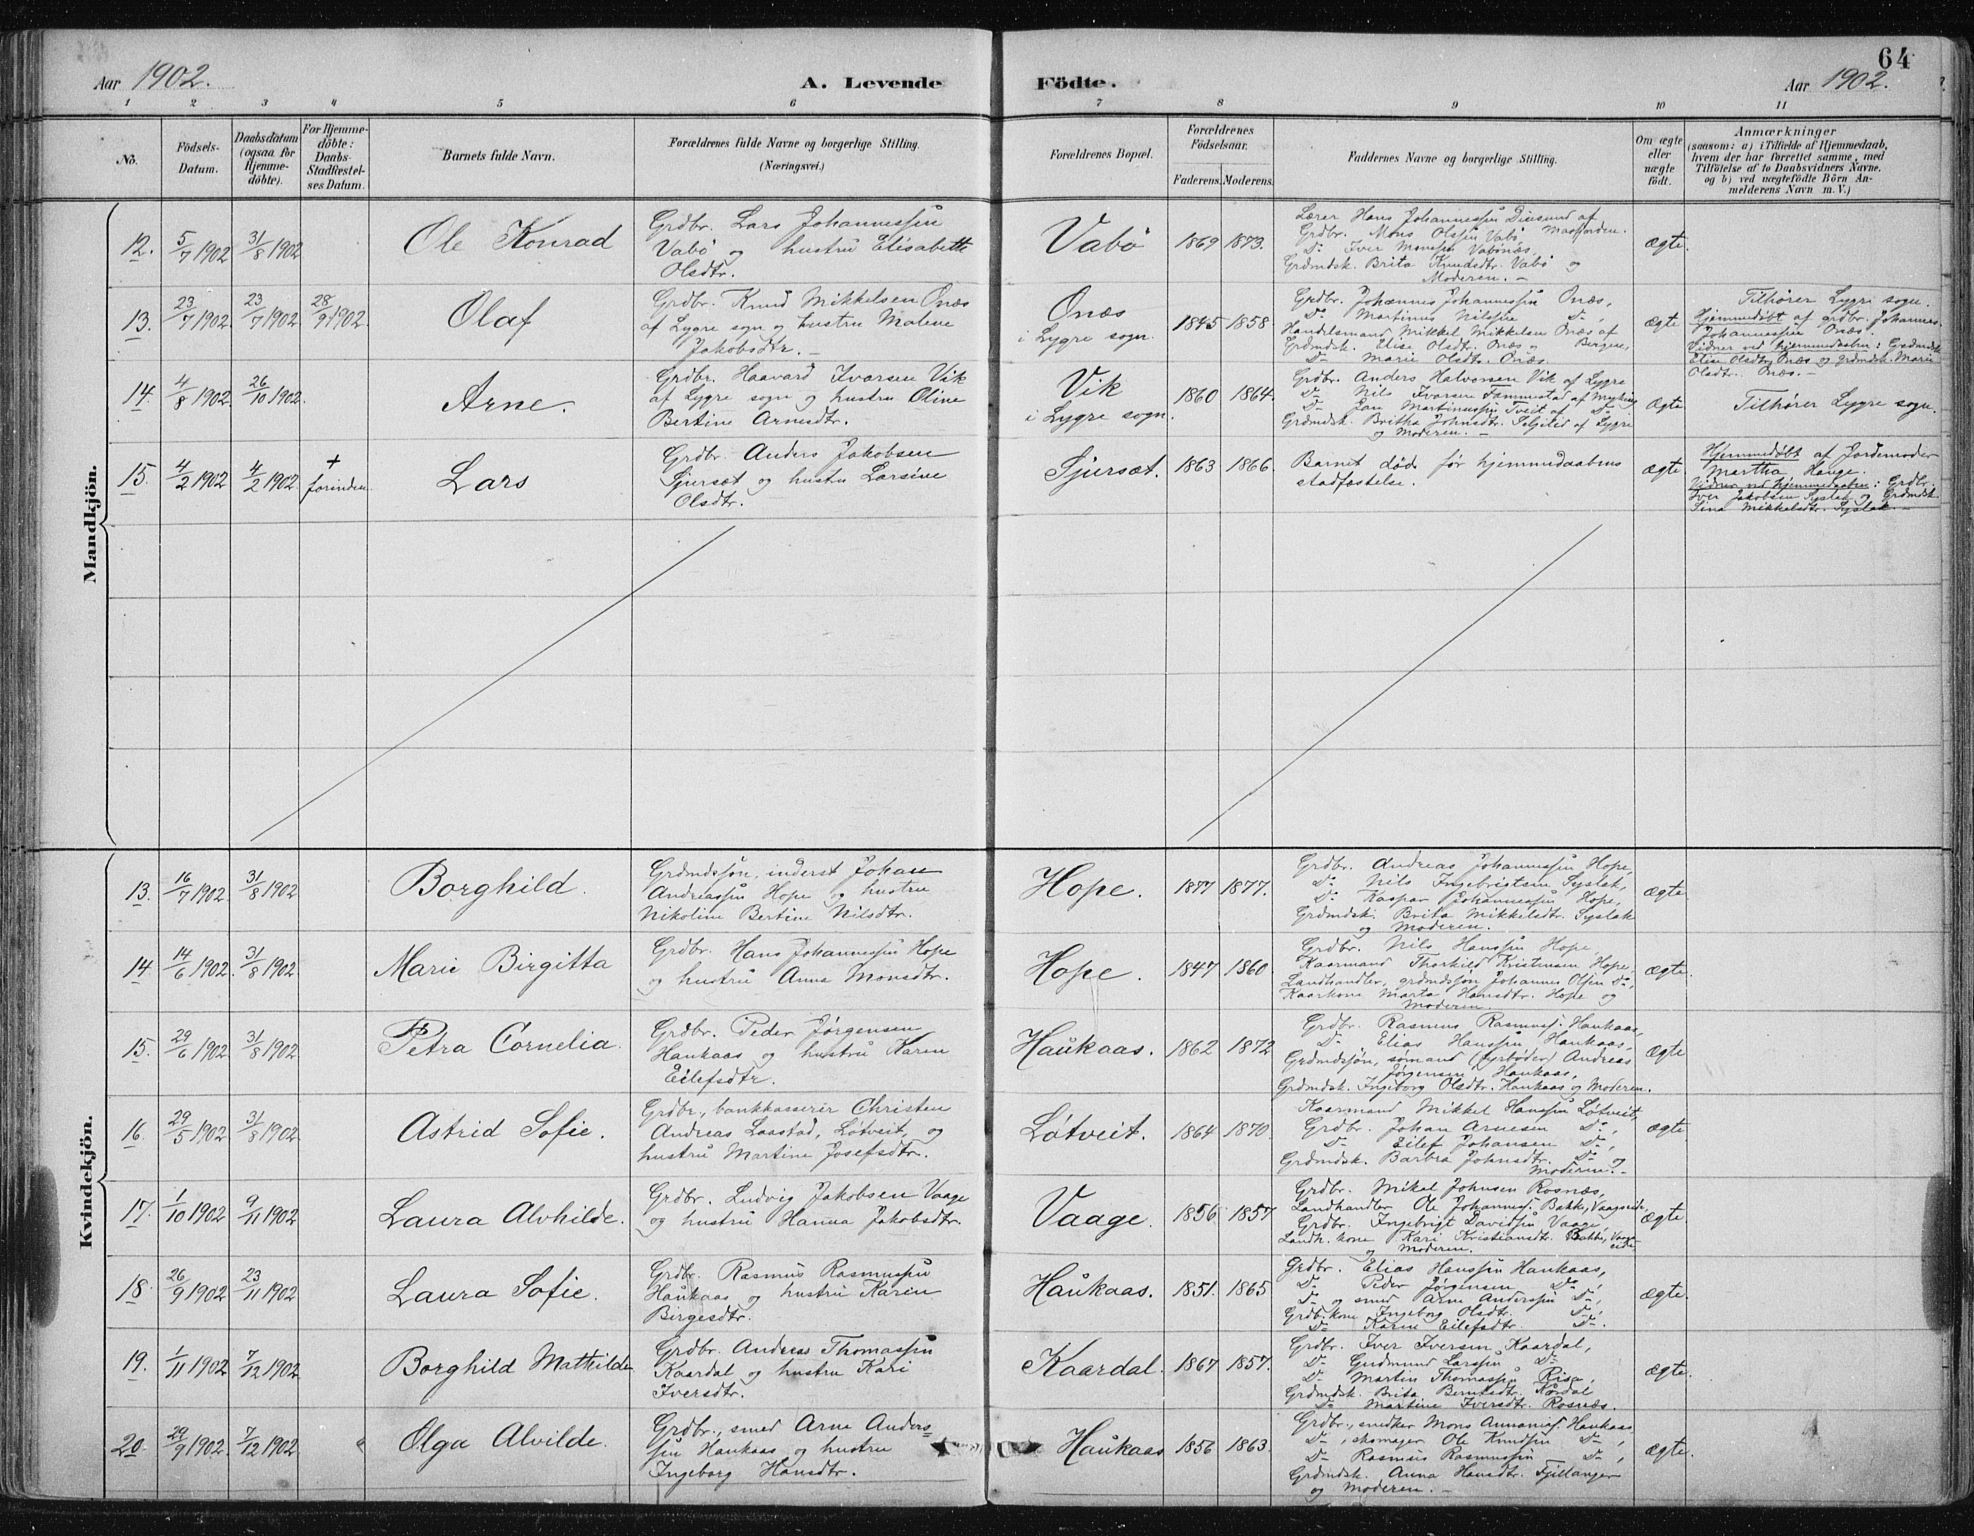 64
Aar 1902.
A. Levende
Födte.
Aar 1902.
1 2 3 4 5 6 7 8 9 10 11
No.
Födsels-
Datum.
Daabsdatum
(ogsaa for
Hjemme-
döbte).
For Hjemme-
döbte:
Daabs-
Stadfæstel-
ses Datum.
Barnets fulde Navn.
Forældrenes fulde Navne og borgerlige Stilling.
(Næringsvei.)
Forældrenes Bopæl.
Forældrenes
Födselsaar.
Faderens. Moderens.
Faddernes Navne og borgerlige Stilling.
Om ægte
eller
uægte
födt.
Anmærkninger
(saasom: a) i Tilfælde af Hjemmedaab,
hvem der har forrettet samme, med
Tilföielse af to Daabsvidners Navne,
og b) ved uægtefödte Börn An-
melderens Navn m. V.)
Mandkjön.
12. 5/7 1902 31/8 1902
Ole Konrad
Grdbr. Lars Johannessen
Vabö og hustru Elisabeth
Olsdtr.
Vabö
1869 1873.
Lærer Hans Johannessen af
Grdbr. Mons Olssen Vabö, Masfjorden.
Do Iver Monssen Vabönæs
Grdmdsk. Brita Knudsdtr. Vabö og
Moderen. —
ægte.
13. 23/7 1902 23/7 1902 28/9 1902.
Olaf
Grdbr. Knud Mikkelsen Onæs
af Lygre sogn og hustru Malene
Jakobsdtr. —
Onæs
i Lygre sogn.
1845 1858.
Grdbr. Johannes Johannessen Onæs,
Do Martinus Nilssen Do,
Handelsmand Mikkel Mikkelsen Onæs af
Grdmdsk. Elise Olsdtr. Onæs og Bergen,
Do Marie Olsdtr. Onæs.
ægte
Tilhører Lygre sogn.
Hjemmedöbt af grdbr. Johannes
Johannessen Onæs.
Vidner ved hjemmedaaben: Grdmdsk.
Elise Olsdtr. Onæs og grdmdsk. Marie
Olsdtr. Onæs. —
14. 4/8 1902. 26/10 1902.
Arne.
Grdbr. Haavard Ivarsen Vik
af Lygre sogn og hustru Oline
Bertine Arnesdtr.
Vik
i Lygre sogn.
1860 1864.
Grdbr. Anders Halvorsen Vik af Lygre
Do Nils Ivarsen Fammestad af
Do Jan Martinussen Tveit af Do
Grdmdsk. Britha Johnsdtr. af Lygre
og Moderen. —
Ægte
Tilhører Lygre sogn.
15. 4/2 1902 4/2 1902 + forinden
Lars
Grdbr. Anders Jakobsen
Sjursæt og hustru Larsine
Olsdtr.
Sjursæt.
1863 1866.
Barnet död för hjemmedaabens
stadfæstelse.
ægte.
Hjemmedöbt af Jordemoder
Martha Hauge.
Vidner ved hjemmedaaben: Grdbr.
Iver Jakobsen Syslak og Grdmdsk.
Sina Mikkelsdtr. Syslak. —
Kvindekjön.
13. 16/7 1902 31/8 1902
Borghild.
Grdmdssön, inderst Johan
Andreassen Hope og hustru
Nikoline Bertine Nilsdtr.
Hope.
1877 1877.
Grdbr. Andreas Johannessen Hope,
Do Nils Ingebrigtsen Syslak,
Do Kaspar Johannessen Hope,
Grdmdsk. Brita Mikkelsdtr. Syslak
og Moderen.
ægte
14 14/6 1902. 31/8 1902
Marie Birgitta
Grdbr. Hans Johannessen Hope
og hustru Anna Monsdtr.
Hope.
1847 1860.
Grdbr. Nils Hanssen Hope
Kaarmand Thorkild Kristensen Hope,
Landhandler, grdmdssön Johannes Olsen Do,
Kaarkone Marta Hansdtr. Hope og
Moderen
ægte.
15. 29/6 1902 31/8 1902
Petra Cornelia.
Grdbr. Peder Jørgensen
Haukaas og hustru Karen
Eilefsdtr.
Haukaas.
1862 1872
Grdbr. Rasmus Rasmuss. Haukaas,
Do Elias Hanssen Haukaas,
Grdmdssön, sömand (fyrböder) Andreas
Jørgensen Haukaas,
Grdmdsk. Ingeborg Olsdtr. Haukaas og Moderen.
Ægte
16. 29/5 1902 31/8 1902
Astrid Sofie.
Grdbr., bankkasserer Christen
Andreas Laastad, Løtveit, og
hustru Martine Josefsdtr.
Løtveit.
1864 1870.
Kaarmand Mikkel Hanssen Løtveit,
Grdbr. Johan Arnesen Do,
Do Eilef Johansen Do,
Grdmdsk. Barbra Johnsdtr. Do og
Moderen. —
ægte
17. 1/10 1902 9/11 1902
Laura Alvhilde.
Grdbr. Ludvig Jakobsen Vaage
og hustru Hanna Jakobsdtr.
Vaage.
1856 1857
Grdbr. Mikal Johnsen Rosnæs,
Landhandler Ole Johanness. Bakke, Vaagseide,
Grdbr. Ingebrigt Davidssen Vaage,
Landh. kone Kari Kristiansdtr. Bakke, Vaags-
eide
og Moderen.
Ægte.
18. 26/9 1902 23/11 1902
Laura Sofie.
Grdbr. Rasmus Rasmussen
Haukaas og hustru Karen
Birgesdtr.
Haukaas.
1851. 1865
Grdbr. Elias Hanssen Haukaas,
Do Peder Jørgensen Do,
Do og smed Arne Anderssen Do,
Grdbr.kone Ingeborg Olsdtr. Do,
Do Karen Eilefsdtr. Do.
ægte.
19. 1/11 1902 7/12 1902
Borghild Mathilde
Grdbr. Andreas Thomassen
Kaardal og hustru Kari
Iversdtr.
Kaardal.
1867 1857.
Grdbr. Iver Iversen Kaardal,
Do Gudmund Larssen Do
Do Martin Thomassen Risa,
Grdmdsk. Brita Berntsdtr. Kordal
Do Martine Iversdtr. Rosnæs.
ægte.
20. 29/9 1902. 7/12 1902
Olga Alvilde.
Grdbr., smed Arne Anders-
sen Haukaas og hustru
Ingeborg Hansdtr.
Haukaas
1856 1863.
Grdbr., snedker Mons Annanias. Haukaas
Do, skomager Ole Knudssen Do,
Do Rasmus Rasmussen Do,
Grdmdsk. Anna Hansdtr. Fjellanger
og Moderen. —
ægte.